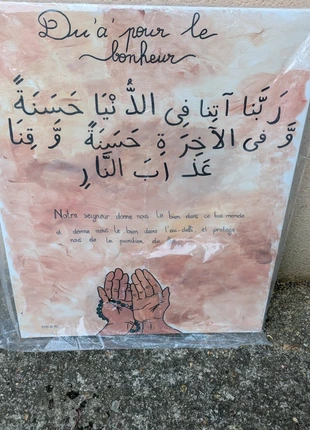 Du'a' pour le
bonheur
رَبَّنَا آتِنا فِي الدُّنْيَا حَسَنَةً
وَّ فِي الآخِرَةِ حَسَنَةً وَّ قِنَا
عَذَابَ النَّارِ
Notre seigneur donne nous le bien dans ce bas monde
et donne nous le bien dans l'au-delà et protège
nous de la punition du